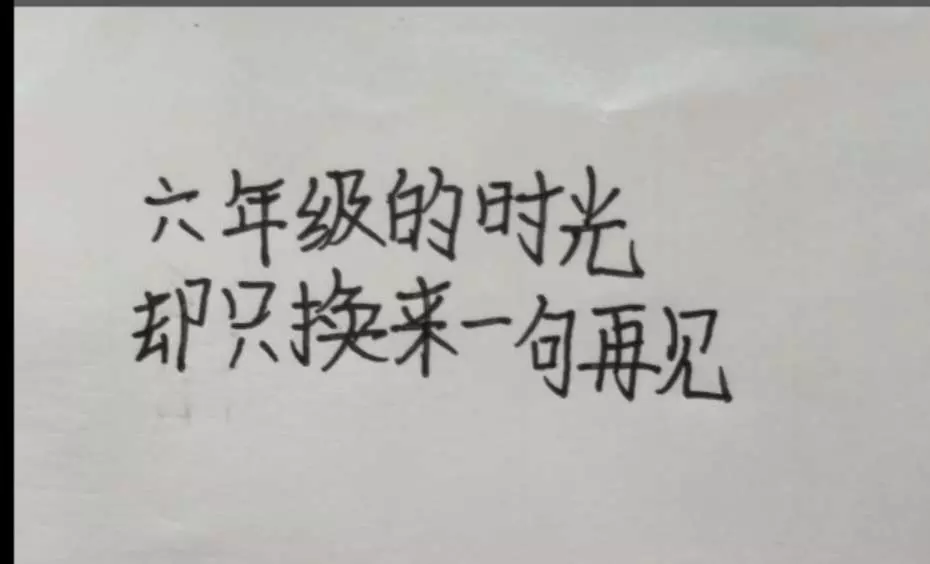 六年级的时光
却只换来一句再见